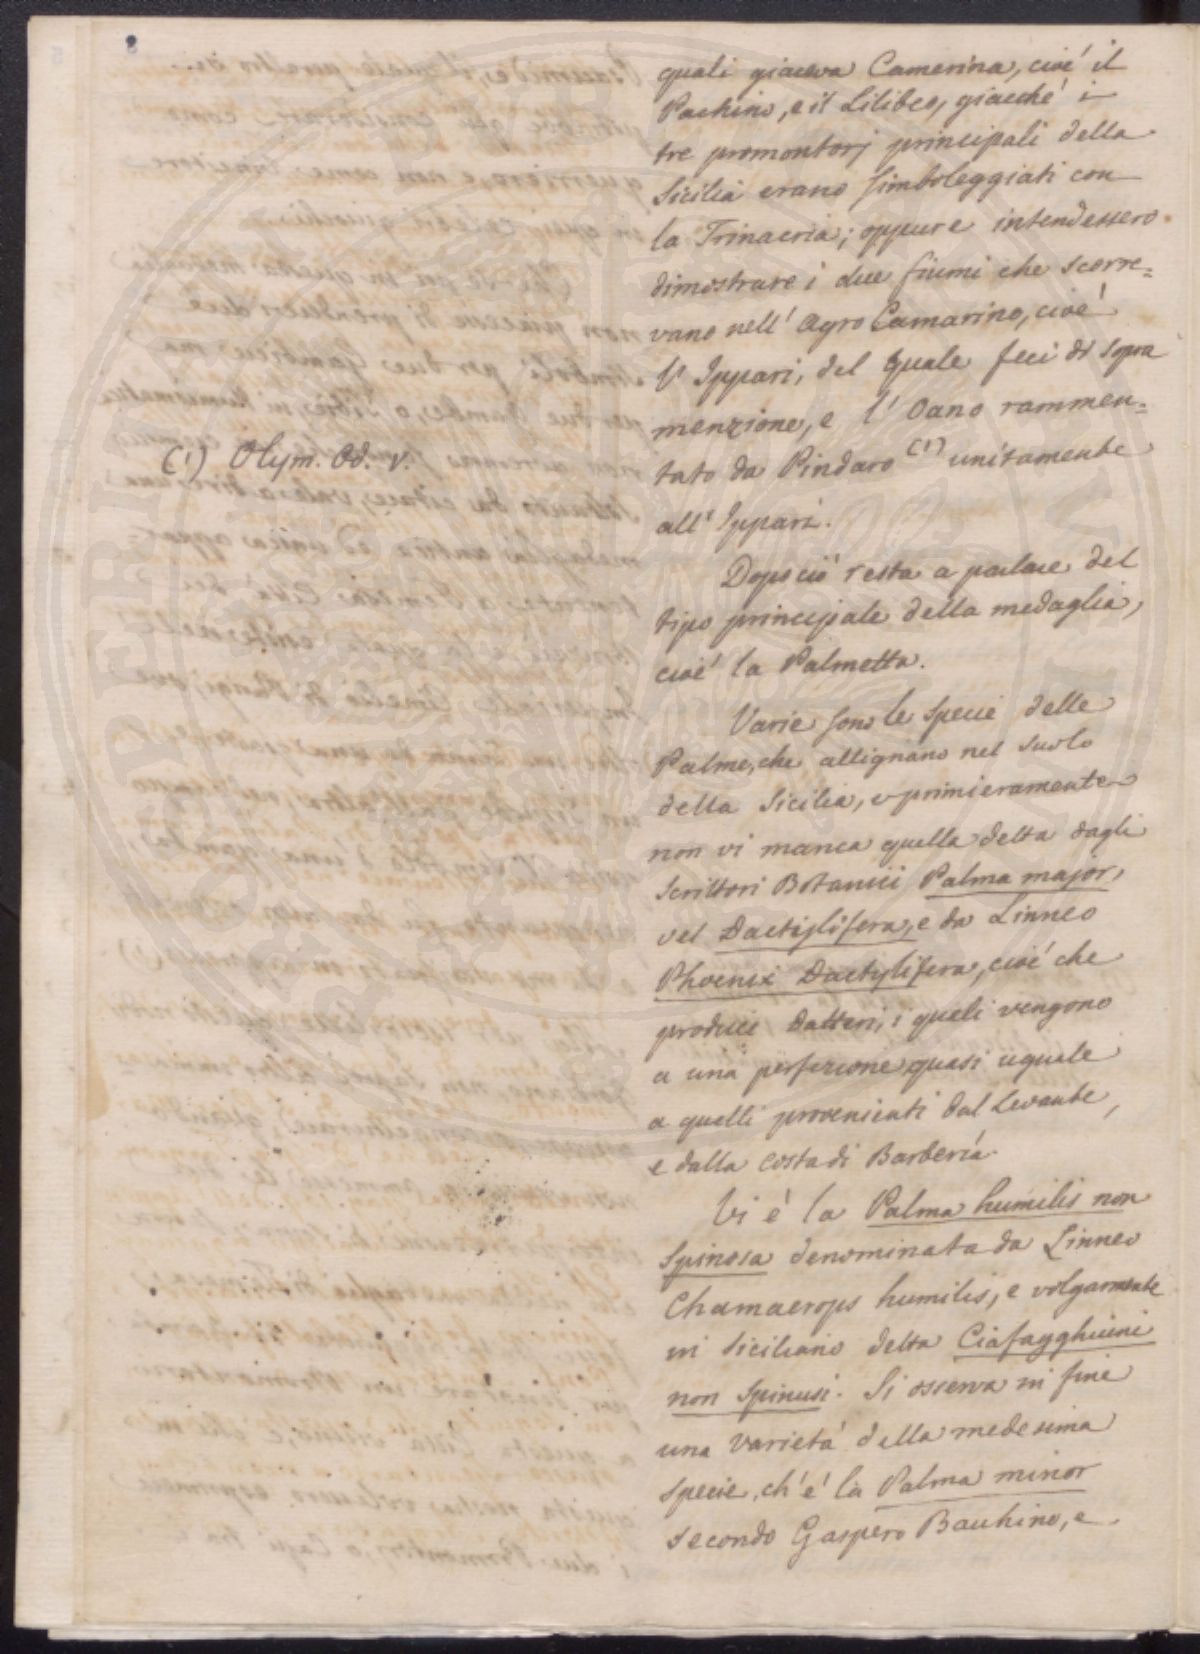 8
quali giaceva Camerina, cioé il
Pachino, e il Lilibeo, giacché i
tre promontorj principali della
Sicilia erano simboleggiati con
la Trinacria; oppure intendessero
dimostrare i due fiumi che scorre=
vano nell' Agro Camarino, cioé
l' Ippari, del quale feci di sopra
menzione, e l' Oano rammen=
tato da Pindaro (1) unitamente
all' Ippari.
(1) Olym. Od. V.
Dopo ciò resta a parlare del
tipo principale della medaglia,
cioé la Palmetta.
Varie sono le specie delle
Palme, che allignano nel suolo
della Sicilia, e primieramente
non vi manca quella detta dagli
Scrittori Botanici Palma major,
vel Dactijlifera, e da Linneo
Phoenix Dactylifera, cioé che
produce Datteri, i quali vengono
a una perfezione quasi uguale
a quelli provenienti dal Levante,
e dalla costa di Barbería.
Vi é la Palma humilis non
Spinosa denominata da Linneo
Chamaerops humilis, e volgarmente
in Siciliano detta Ciafagghiuni
non Spinusi. Si osserva in fine
una varietá della medesima
specie, ch' é la Palma minor
secondo Gaspero Bauhino, e